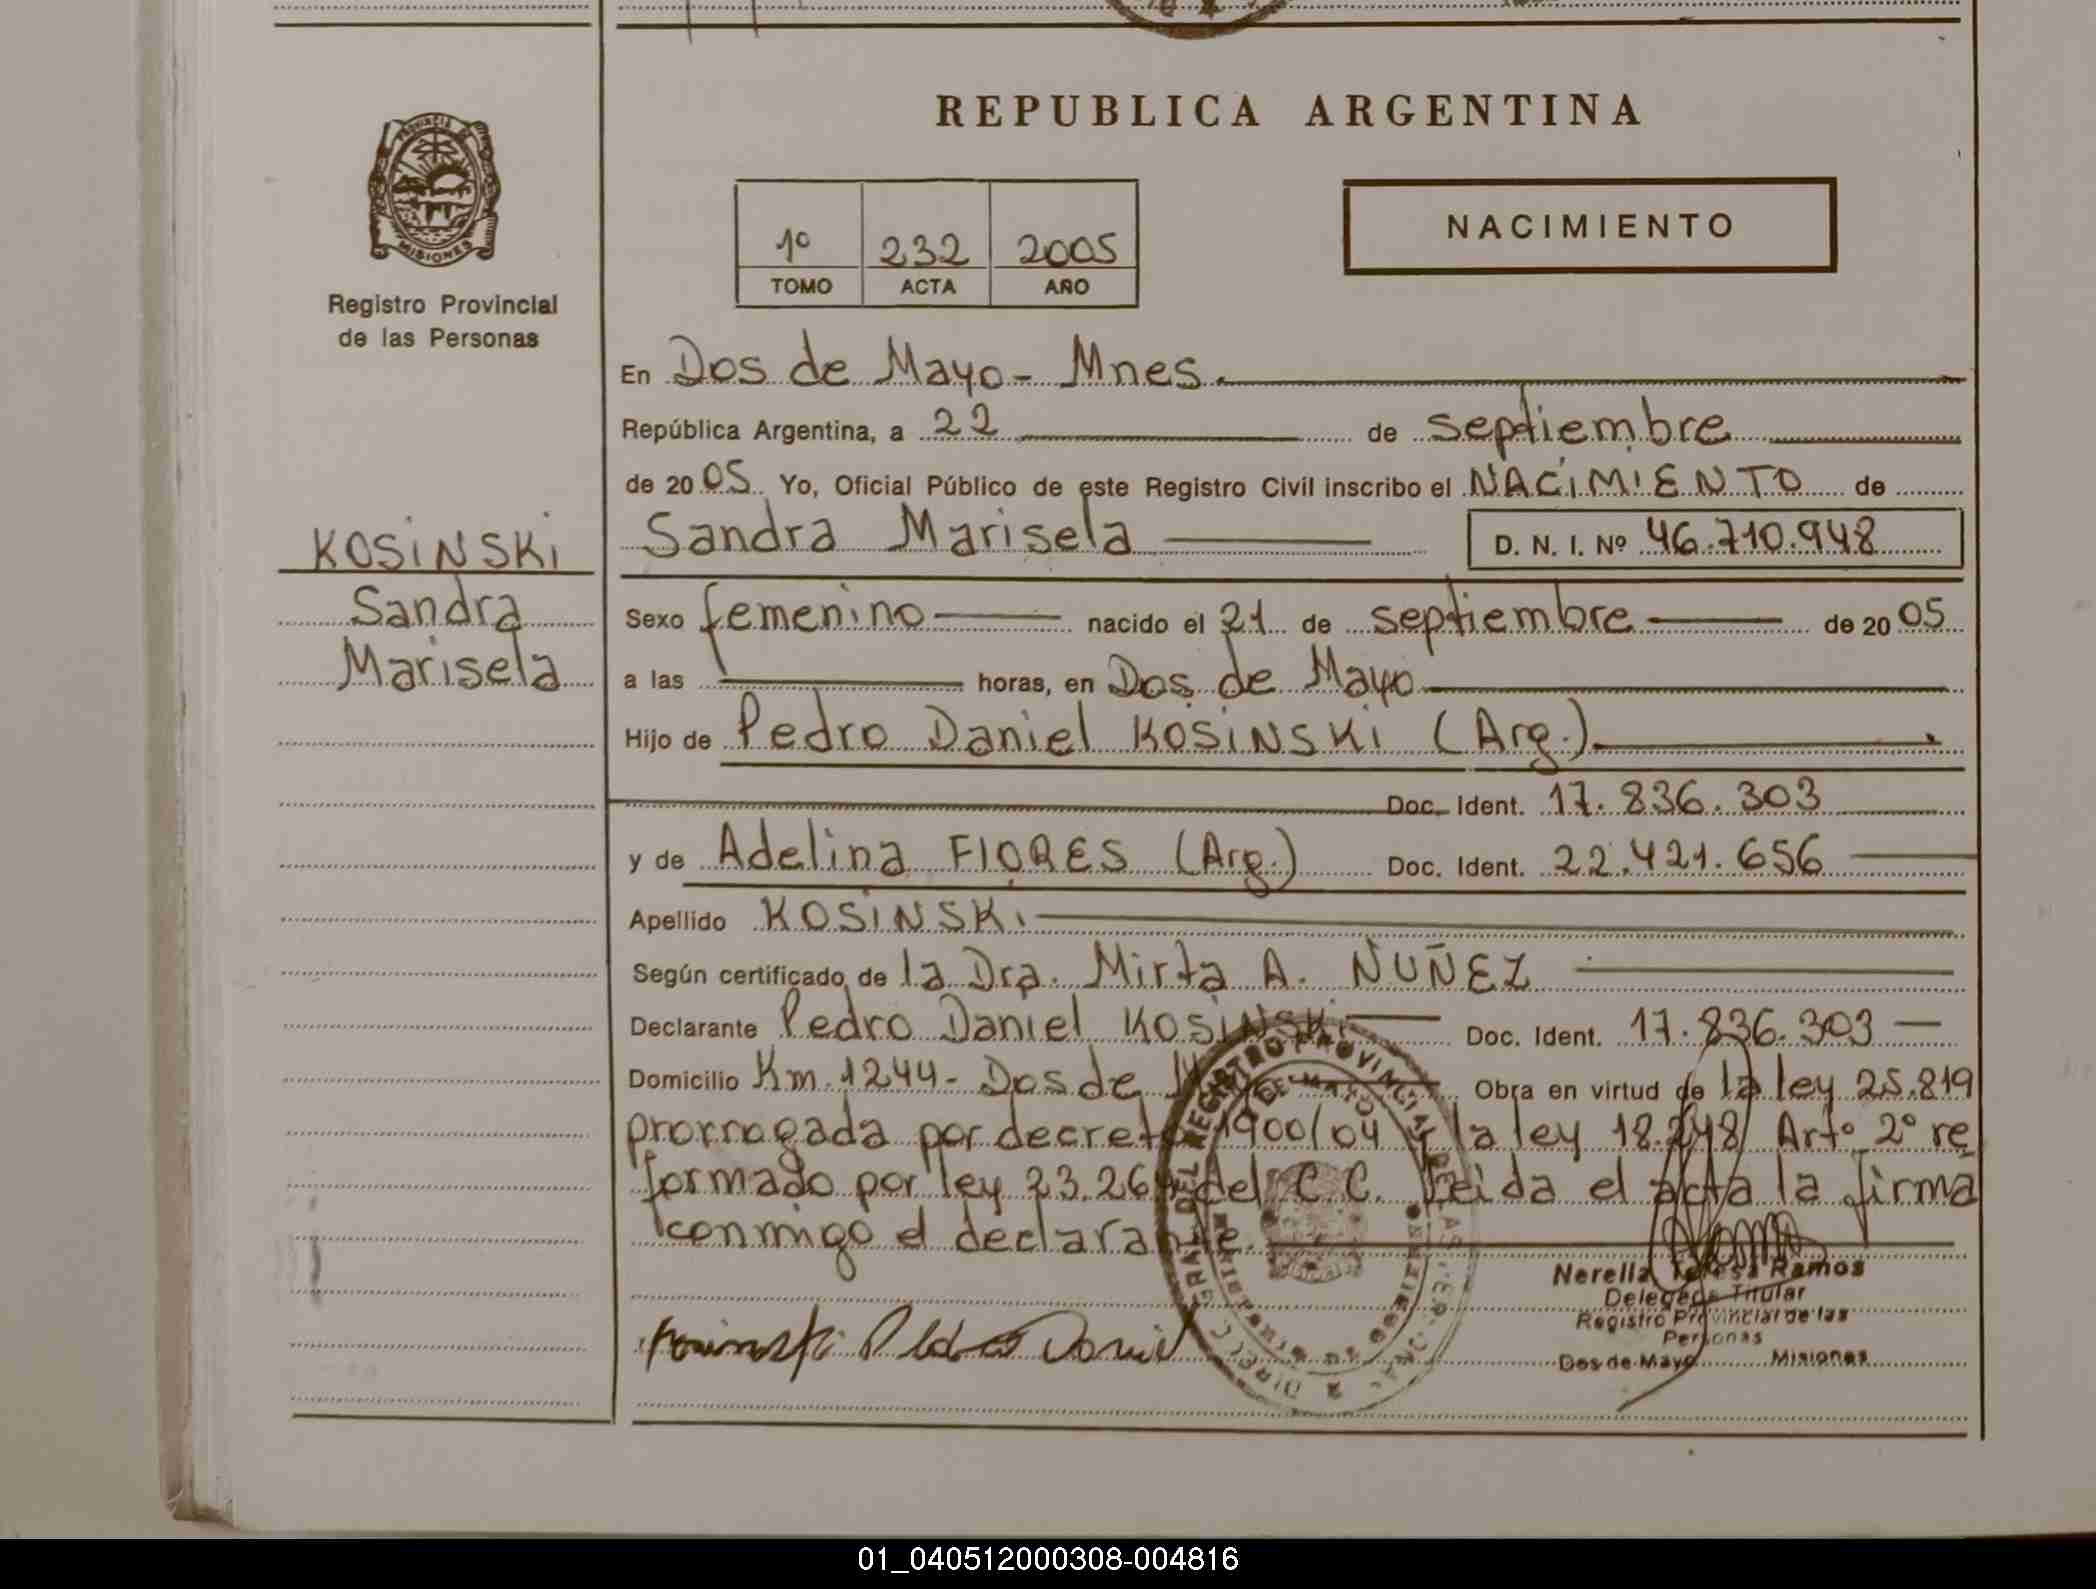 REPUBLICA ARGENTINA
PROVINCIA DE
MISIONES
Registro Provincial
de las Personas
1º 232 2005
TOMO ACTA AÑO
NACIMIENTO
En Dos de Mayo - Mnes.
República Argentina, a 22 de septiembre
de 2005 Yo, Oficial Público de este Registro Civil inscribo el NACIMIENTO de
Sandra Marisela D. N. I. Nº 46.710.948
KOSINSKI
Sandra
Marisela
Sexo femenino nacido el 21 de septiembre de 2005
a las horas, en Dos de Mayo
Hijo de Pedro Daniel KOSINSKI (Arg.)
Doc. Ident. 17.836.303
y de Adelina FLORES (Arg.) Doc. Ident. 22.421.656
Apellido KOSINSKI
Según certificado de la Dra. Mirta A. NUÑEZ
Declarante Pedro Daniel KOSINSKI Doc. Ident. 17.836.303
Domicilio Km. 1244 - Dos de Obra en virtud de la ley 25.819
prorrogada por decreto 1900/04 y la ley 18.248 Artº 2º re
formado por ley 23.264 del C.C. Leida el acta la firma
conmigo el declarante.
Kosinski Pedro Daniel
Nerella Teresa Ramos
Delegada Titular
Registro Provincial de las
Personas
Dos de Mayo Misiones
01_040512000308-004816